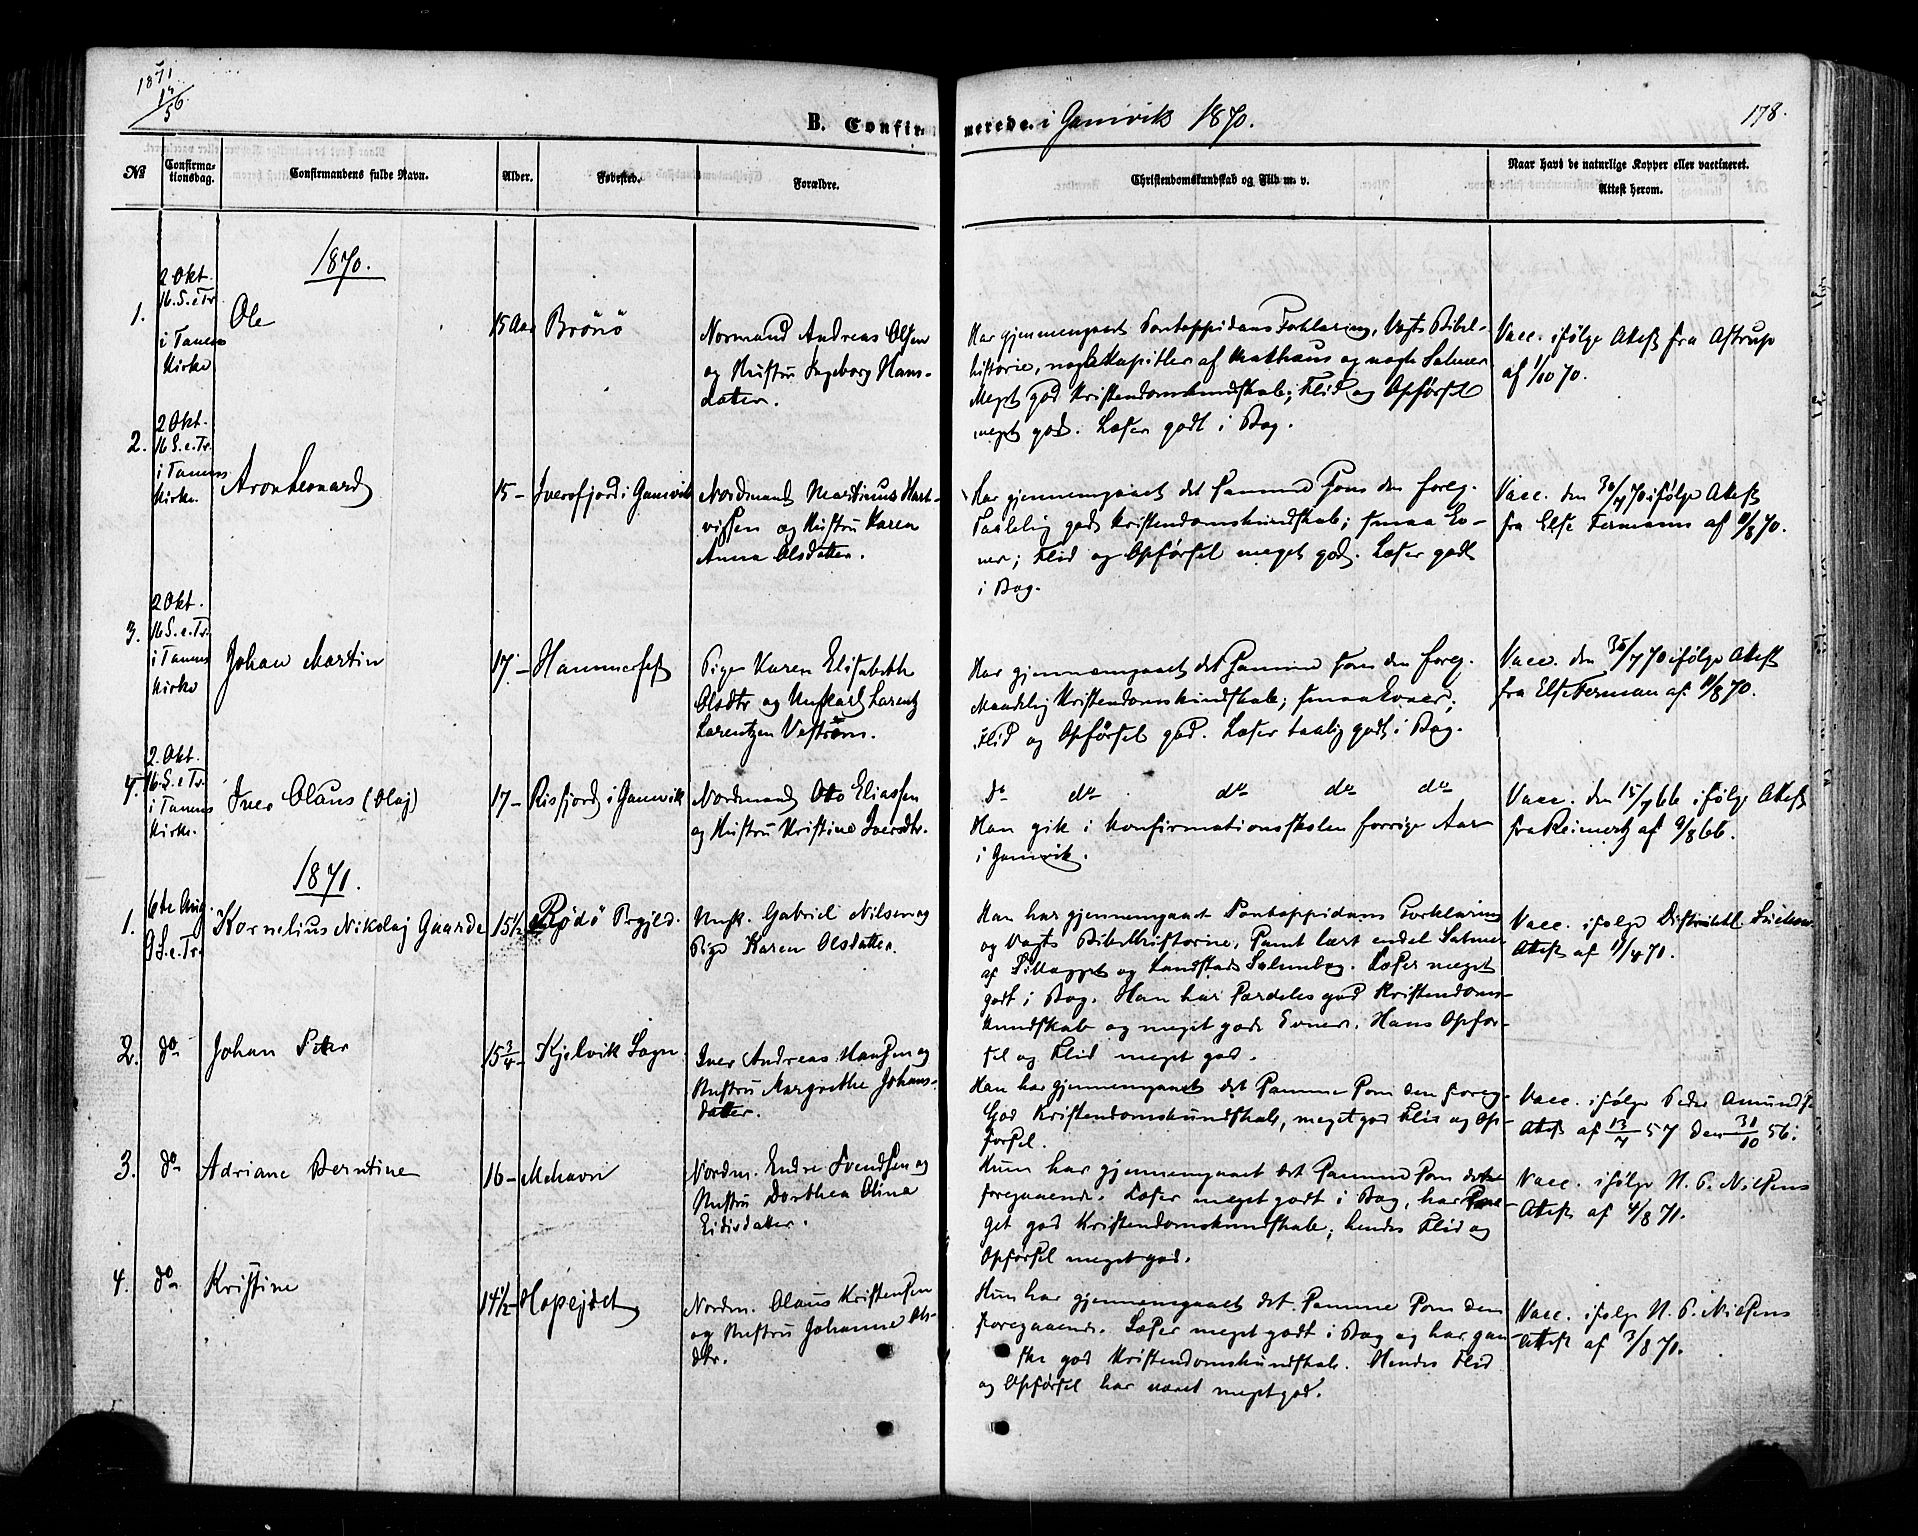 1871
14/56.
B. Confirmerede. i Gamvik 1870.
178.
No
Confirmationsdag.
Confirmandens fulde Navn.
Alder.
Fødested.
Forældre.
Christendomskundskab og Flid m. v.
Naar havd de naturlige Kopper eller vaccineret.
Attest herom.
1870.
1.
2 Okt.
16.S.e.Tr.
i Tanens
Kirke
Ole
15 Aar
Brönö
Normand Andreas Olsen
og Hustru Ingeborg Hans-
datter.
Har gjennemgaaet Pontoppidans Forklaring, Vogts Bibel-
historie, nogle Kapitler af Mathæus og nogle Salmer
Meget god Kristendomskundskab; Flid og Opførsel
meget god. Læser godt i Bog.
Vacc. ifølge Attest fra Astrup
af 1/10 70.
2.
2 Okt.
16 S.e.Tr.
i Tanens
Kirke.
Aron Leonard
15 -
Iversfjord i Gamvik
Nordmand Martinus Hart-
vigsen og Hustru Karen
Anna Olsdatter.
Har gjennemgaaet det samme som den foreg.
Taalelig god Kristendomskundskab; smaa Ev-
ner; Flid og Opførsel meget god. Læser godt
i Bog.
Vacc. den 30/7 70 ifølge Attest
fra Else Fermann af 11/8 70.
3.
2 Okt.
16 S.e.Tr.
i Tanens
Kirke
Johan Martin
17. -
Hammerfest
Pige Karen Elisabeth
Olsdtr og Unkarl Lorentz
Lorentzen Veström.
Har gjennemgaaet det samme som den foreg.
Maadelig Kristendomskundskab; smaa Evner;
Flid og Opførsel god. Læser taalig godt i Bog.
Vacc. den 30/7 70 ifølge Attest
fra Else Ferman af 11/8 70.
4.
2. Okt.
16.S.e Tr.
i Tanens
Kirke.
Iver Olaus (Olaj)
17 -
Risfjord i Gamvik
Nordmand Otto Eliassen
og Hustru Kristine Iversdtr.
do do do do do
Han gik i Konfirmationsskolen forrige Aar
i Gamvik.
Vacc. den 15/7 66 ifølge Attest
fra Reimertz af 9/8 66.
1871.
1.
6te Aug.
9 S.e.Tr.
Kornelius Nikolaj Gaarde
15 1/2
Rødö Prgjld.
Unk. Gabriel Nilsen og
Pige Karen Olsdatter.
Han har gjennemgaaet Pontoppidans Forklaring
og Vogts Bibelhistorie, samt lært endel Salmer
af Tillægget og Landstads Salmebog. Læser meget
godt i Bog. Han har særdeles god Kristendoms-
kundskab og meget gode Evner. Hans Opfør-
sel og Flid meget god.
Vacc. ifølge Distriktsl.
Attest af 11/4 70.
2.
do
Johan Peter
15 3/4 -
Kjelvik Sogn
Iver Andreas Hansen og
Hustru Margrethe Johans-
datter.
Han har gjennemgaaet det samme som den foreg.
God Kristendomskundskab, meget god Flid og Op-
førsel.
Vacc. ifølge Peder Amunds
Attest af 13/7 57 den 31/10 56.
3.
do
Adriane Berntine
16 -
Mehavn
Nordm. Endre Svendsen og
Hustru Dorthea Olina
Eidisdatter.
Hun har gjennemgaaet det samme som det
foregaaende. Læser meget godt i Bog, har me-
get god Kristendomskundskab; hendes Flid og
Opførsel meget god.
Vacc. ifølge N. P. Nielsens
Attest af 4/8 71.
4.
do
Kristine
14 1/2 -
Hopejdet
Nordm. Olaus Kristensen
og Hustru Johanne Ols-
dtr.
Hun har gjennemgaaet det samme som den
foregaaende. Læser meget godt i Bog og har gan-
ske god Kristendomskundskab. Hendes Flid
og Opførsel har været meget god.
Vacc. ifølge N. P. Nielsens
Attest af 3/8 71.